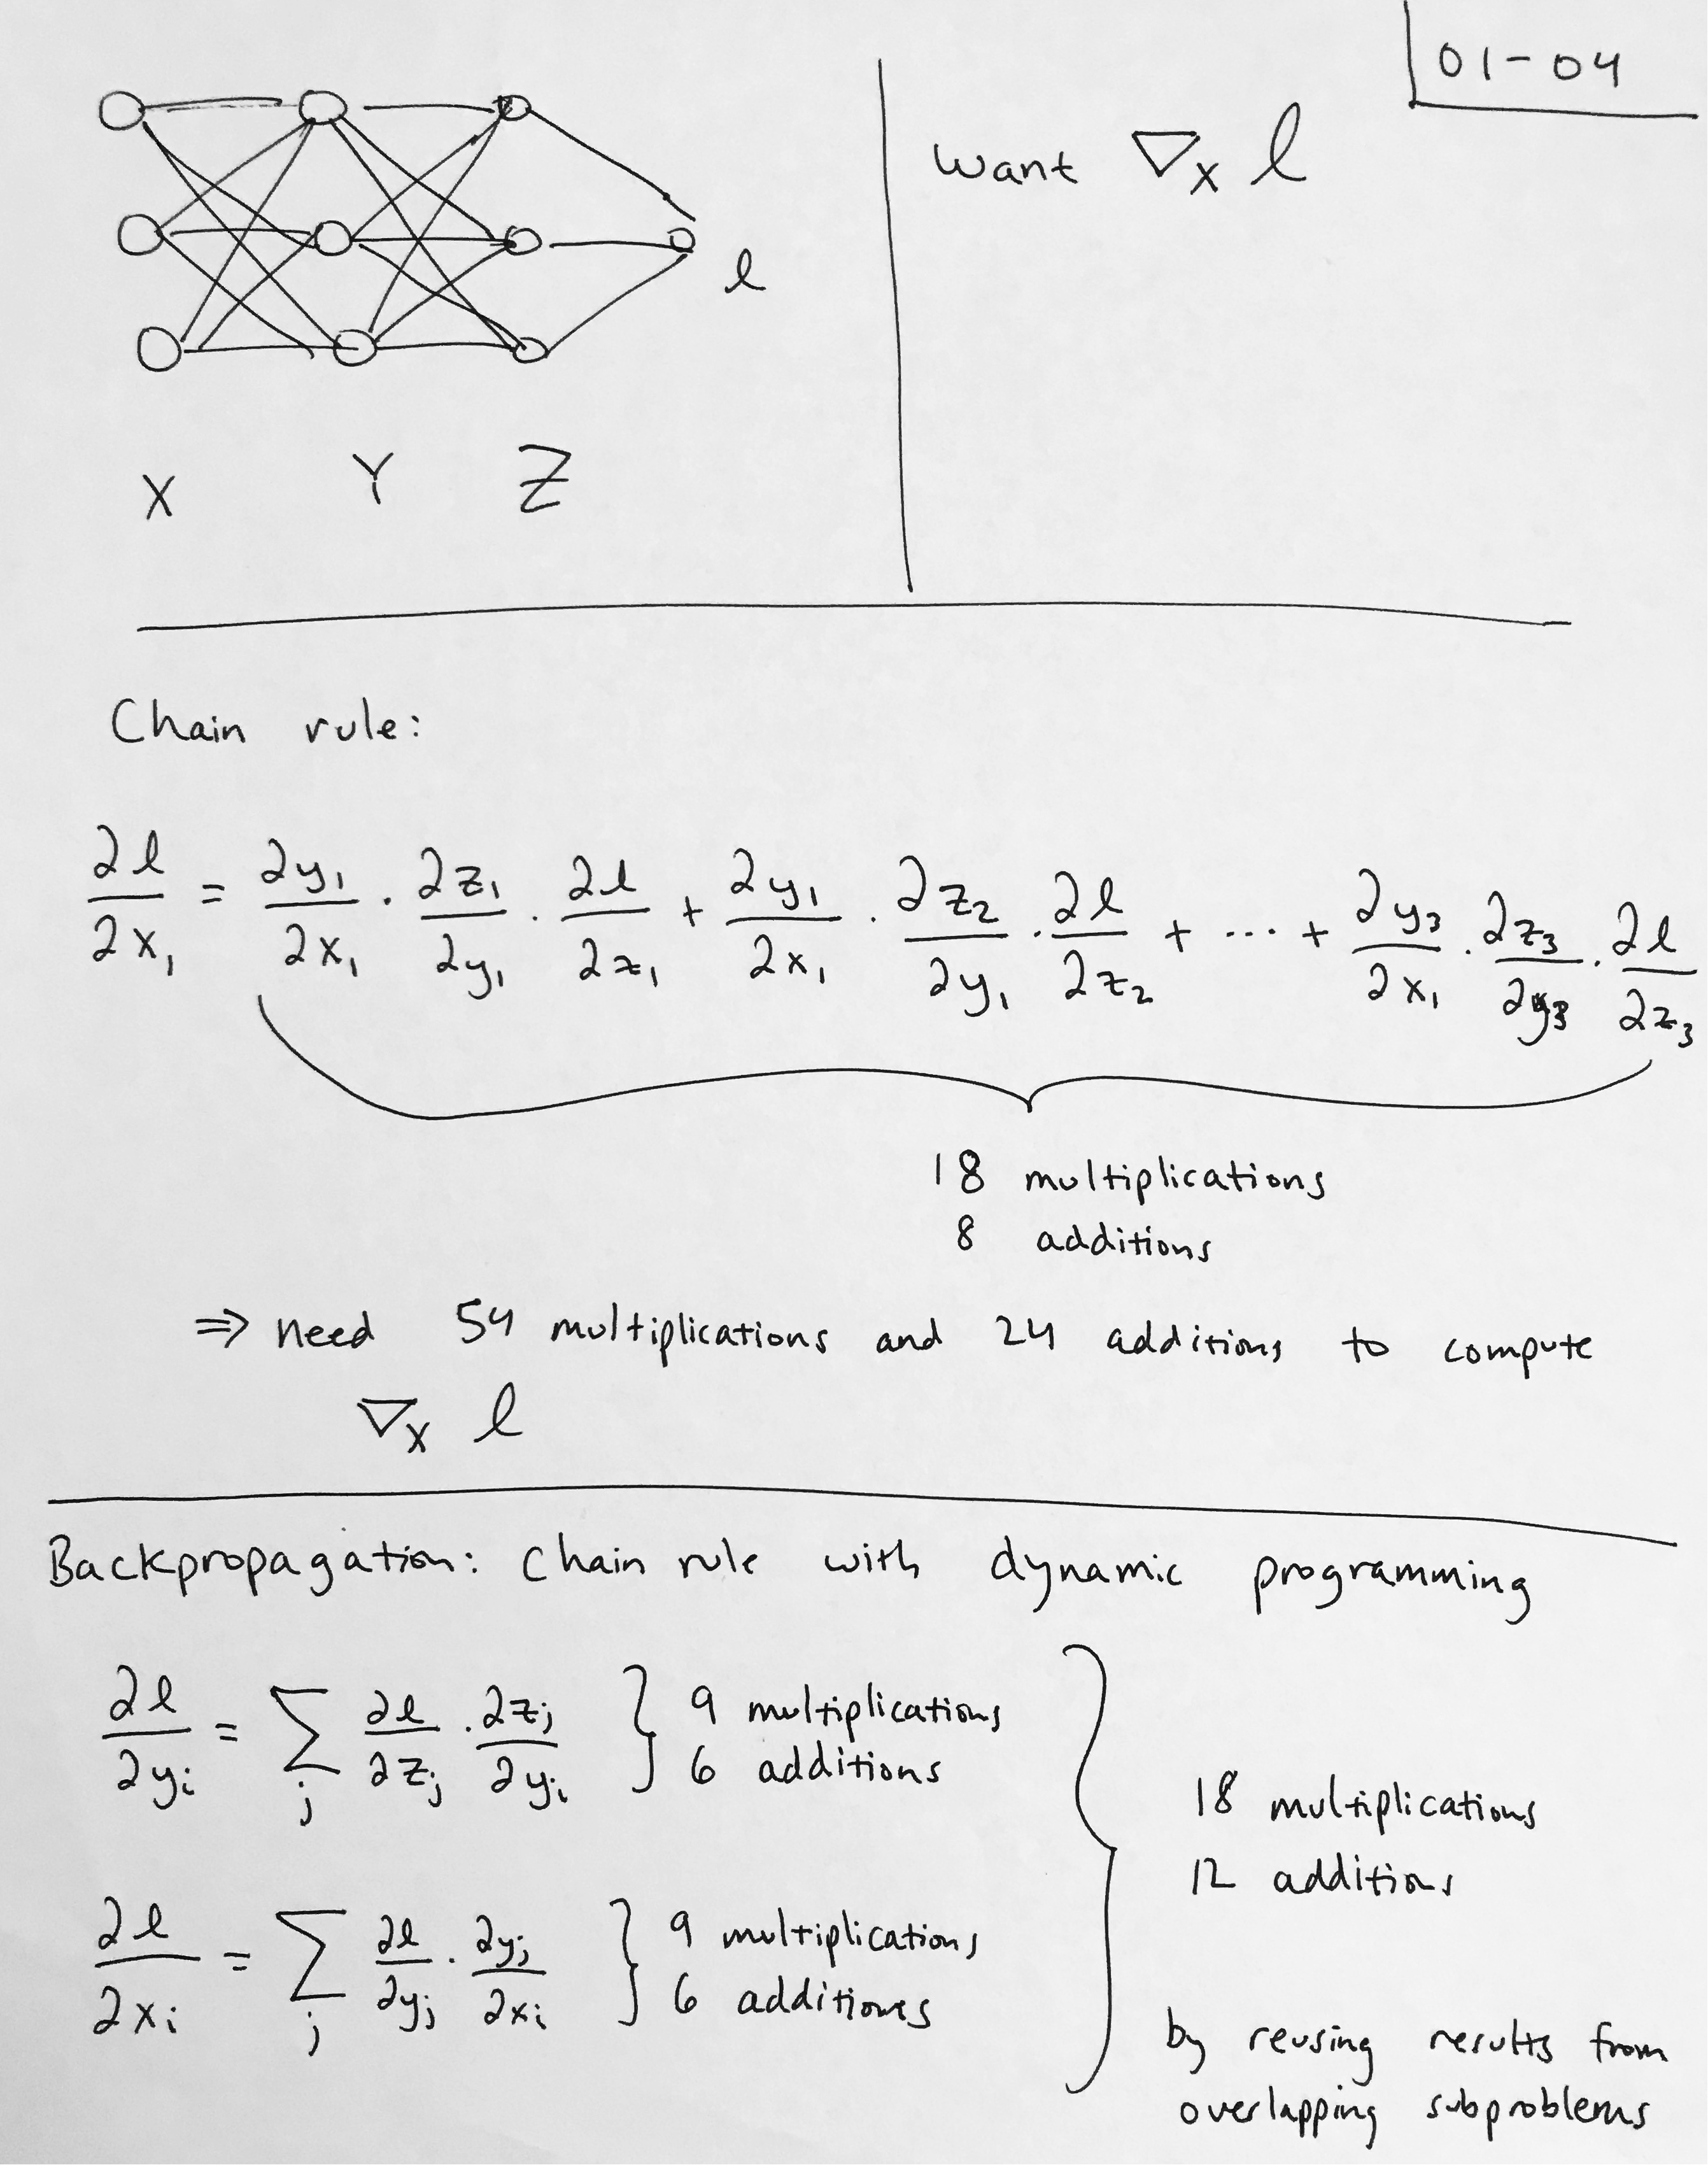 01-04
want ∇ₓ ℓ
ℓ
X Y Z
Chain rule:
∂ℓ/∂x₁ = ∂y₁/∂x₁ · ∂z₁/∂y₁ · ∂ℓ/∂z₁ + ∂y₁/∂x₁ · ∂z₂/∂y₁ · ∂ℓ/∂z₂ + ... + ∂y₃/∂x₁ · ∂z₃/∂y₃ · ∂ℓ/∂z₃
18 multiplications
8 additions
⇒ need 54 multiplications and 24 additions to compute
∇ₓ ℓ
Backpropagation: Chain rule with dynamic programming
∂ℓ/∂yᵢ = Σⱼ ∂ℓ/∂zⱼ · ∂zⱼ/∂yᵢ } 9 multiplications
6 additions
∂ℓ/∂xᵢ = Σⱼ ∂ℓ/∂yⱼ · ∂yⱼ/∂xᵢ } 9 multiplications
6 additions
} 18 multiplications
12 additions
by reusing results from
overlapping subproblems